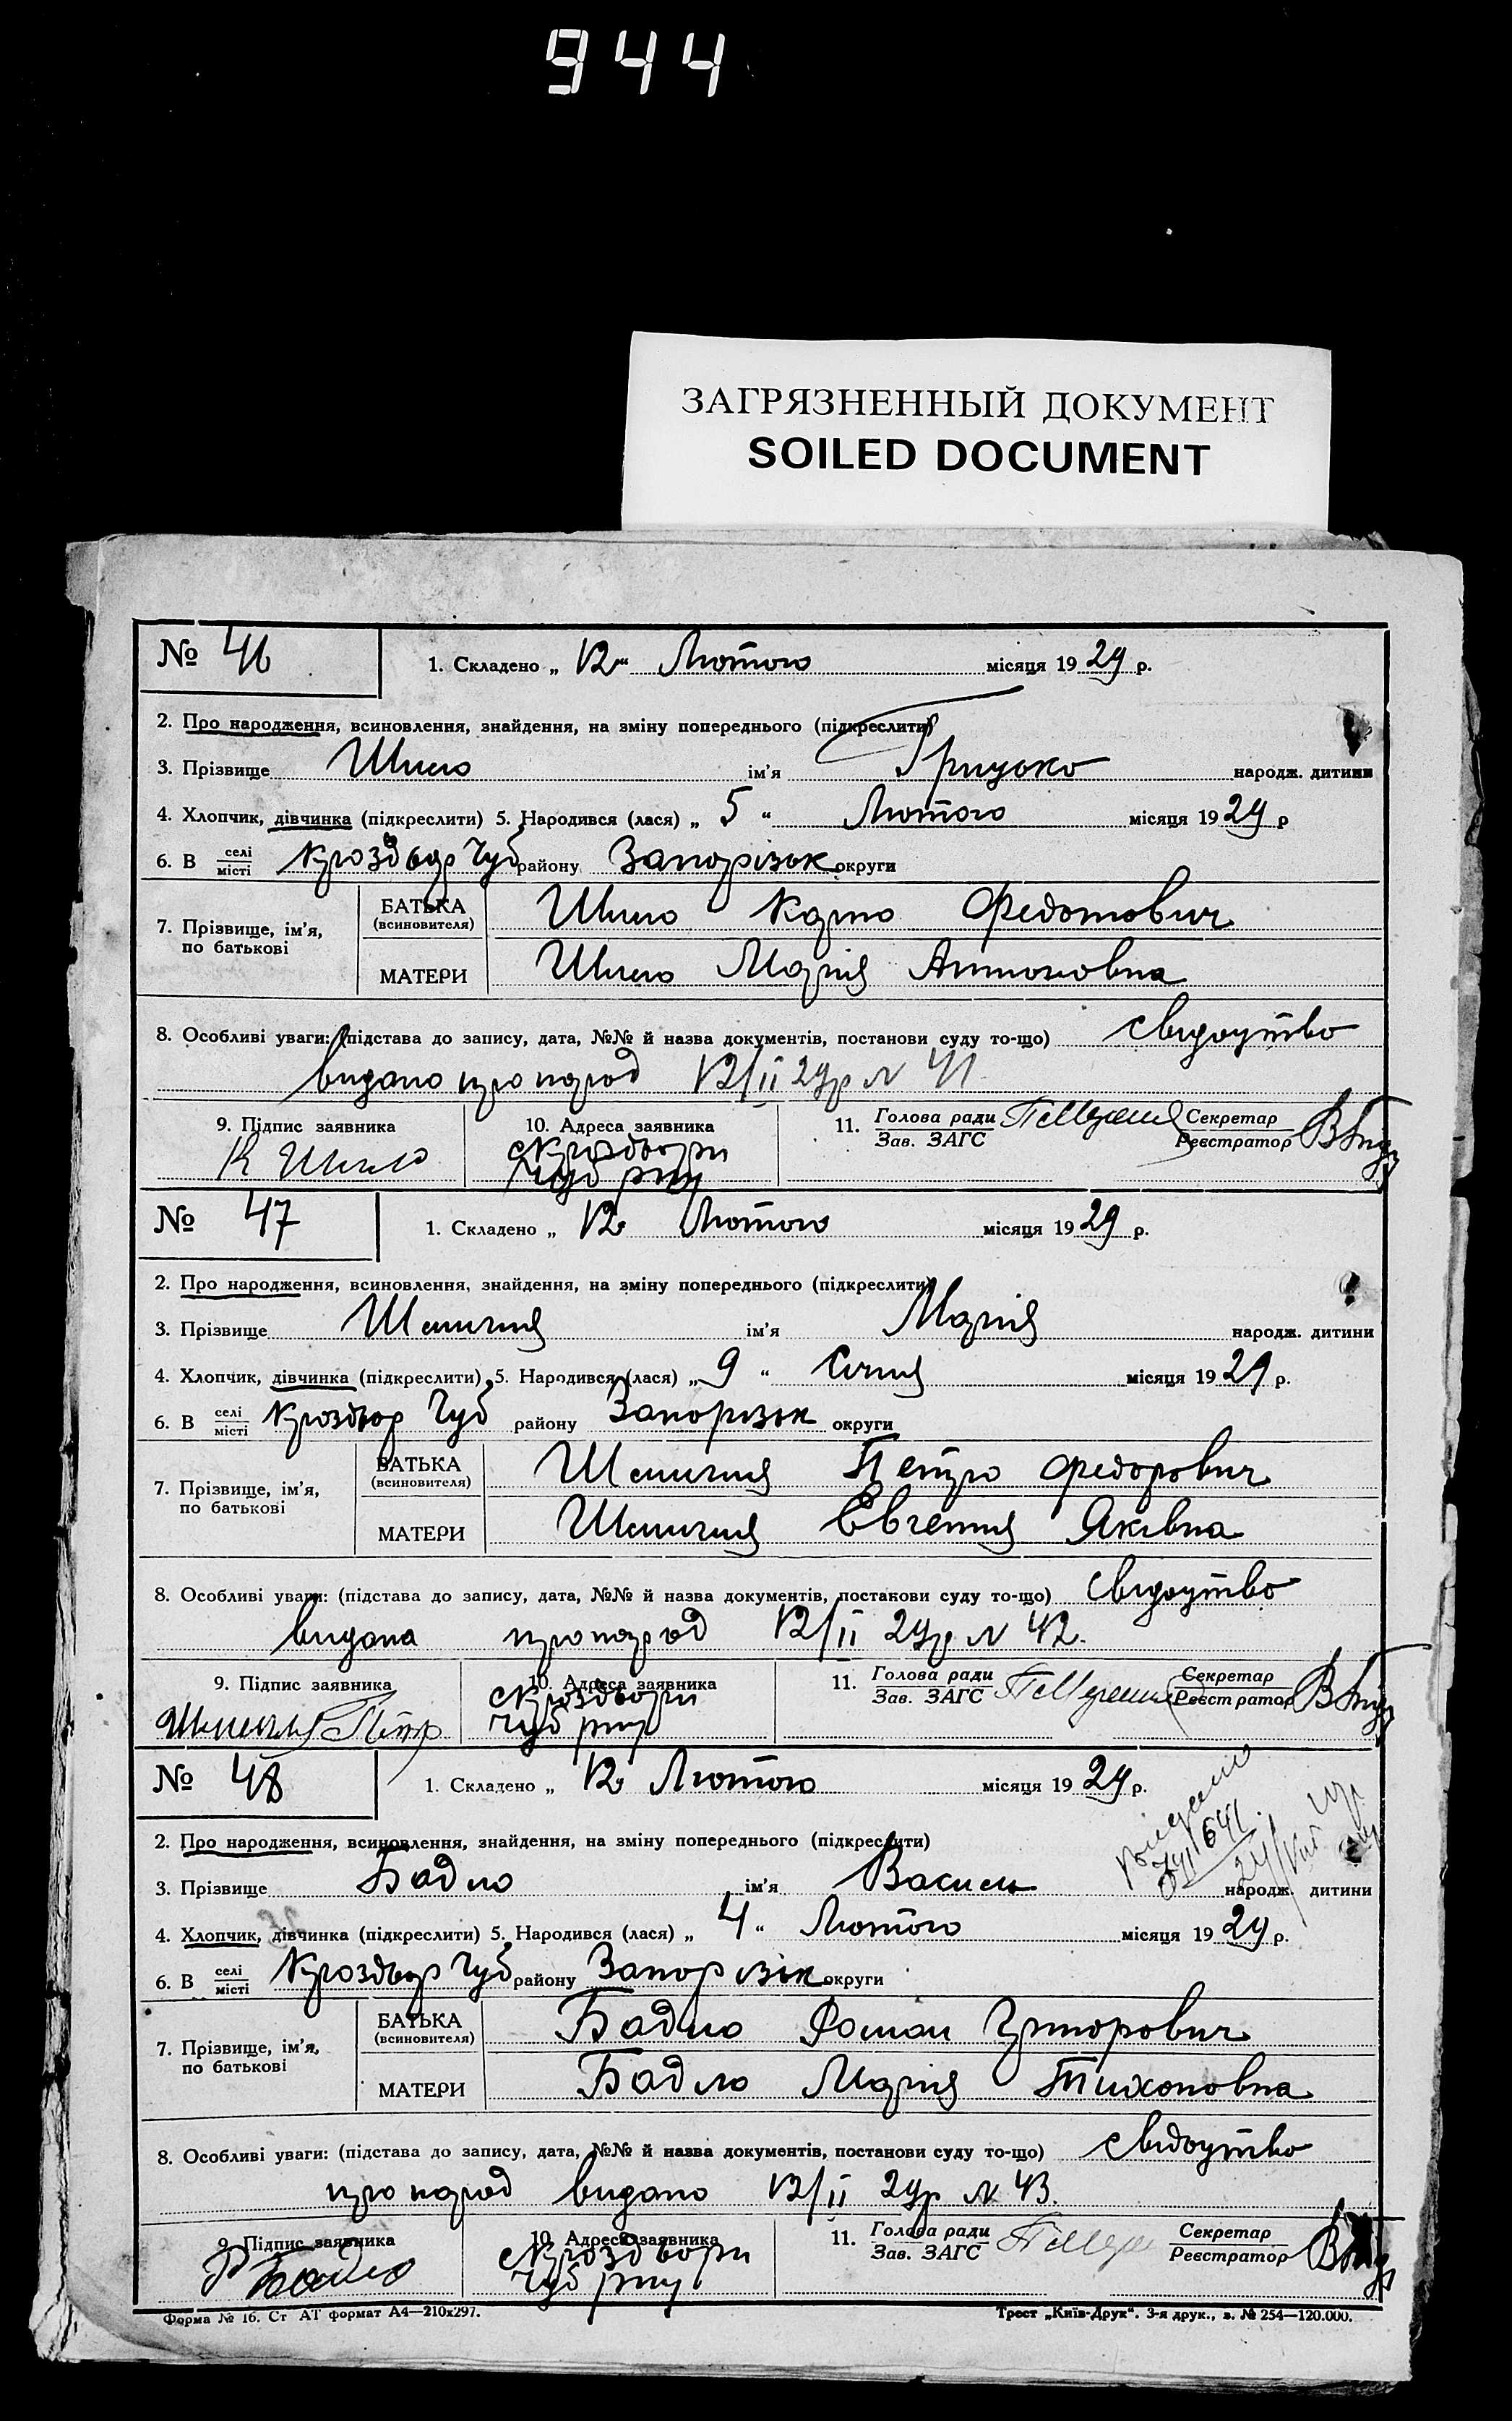 944
ЗАГРЯЗНЕННЫЙ ДОКУМЕНТ
SOILED DOCUMENT
№ 46 1. Складено „ 12 “ Лютого місяця 1929 р.
2. Про народження, всиновлення, знайдення, на зміну попереднього (підкреслити)
3. Прізвище Шило ім'я Грицько народж. дитини
4. Хлопчик, дівчинка (підкреслити) 5. Народився (лася) „ 5 “ Лютого місяця 1929 р
6. В селі місті Кроздвор Чуб району Запорізьк округи
7. Прізвище, ім'я, по батькові
БАТЬКА (всиновителя) Шило Карпо Федотович
МАТЕРИ Шило Марія Антоновна
8. Особливі уваги: (підстава до запису, дата, №№ й назва документів, постанови суду то-що) свидоцтво
видано про народ 12/II 29р N 41
9. Підпис заявника 10. Адреса заявника 11. Голова ради Зав. ЗАГС Секретар Реєстратор
К Шило
Чуб рну
№ 47 1. Складено „ 12 Лютого місяця 1929 р.
2. Про народження, всиновлення, знайдення, на зміну попереднього (підкреслити)
3. Прізвище ім'я Марія народж. дитини
4. Хлопчик, дівчинка (підкреслити) 5. Народився (лася) „ 9 “ Січня місяця 1929 р.
6. В селі місті Кроздвор Чуб району Запорізьк округи
7. Прізвище, ім'я, по батькові
БАТЬКА (всиновителя) Петро Федорович
МАТЕРИ Євгения Яківна
8. Особливі уваги: (підстава до запису, дата, №№ й назва документів, постанови суду то-що) свидоцтво
видана про народ 12/II 29р N 42.
9. Підпис заявника 10. Адреса заявника 11. Голова ради Зав. ЗАГС Секретар Реєстратор
Чуб рну
№ 48 1. Складено „ 12 Лютого місяця 1929 р.
2. Про народження, всиновлення, знайдення, на зміну попереднього (підкреслити)
3. Прізвище Бадло ім'я Василь народж. дитини
4. Хлопчик, дівчинка (підкреслити) 5. Народився (лася) „ 4 “ Лютого місяця 1929 р.
6. В селі місті Кроздвор Чуб району Запорізьк округи
7. Прізвище, ім'я, по батькові
БАТЬКА (всиновителя) Бадло Роман
МАТЕРИ Бадло Марія Тихоновна
8. Особливі уваги: (підстава до запису, дата, №№ й назва документів, постанови суду то-що) свідоцтво
про народ видано 12/II 29р N 43.
9. Підпис заявника 10. Адреса заявника 11. Голова ради Зав. ЗАГС Секретар Реєстратор
Р Бадло
Чуб рну
Форма № 16. Ст АТ формат А4—210х297. Трест „Київ-Друк“. 3-я друк., з. № 254—120.000.